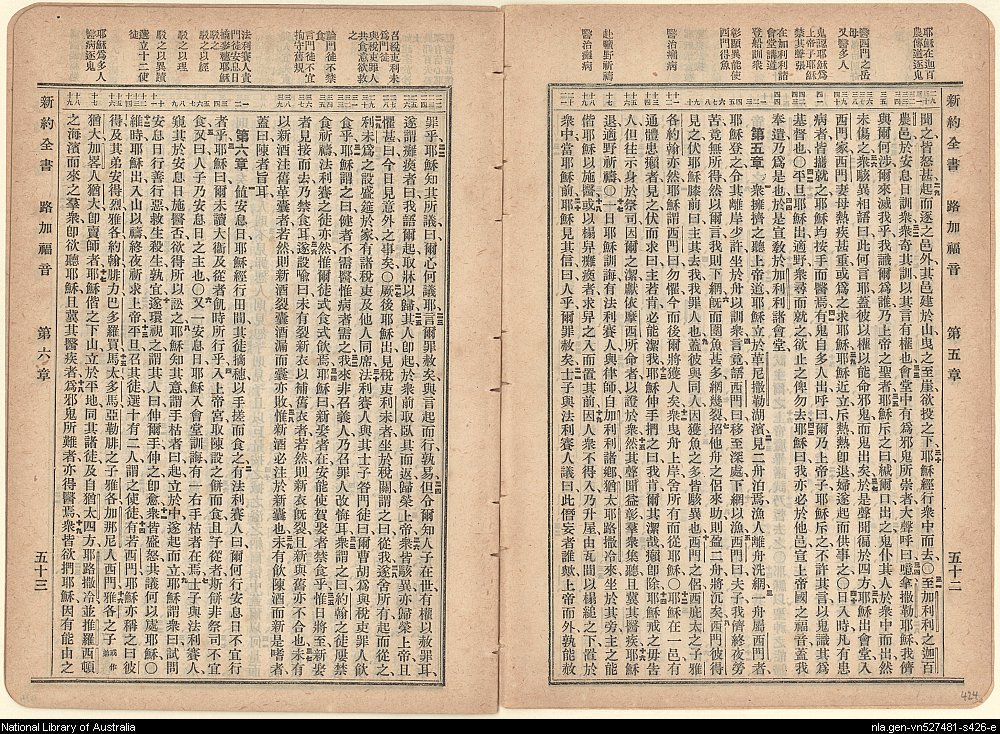 新約全書 路加福音 第五章 五十二
耶穌在迦百
農傳道逐鬼
醫西門之岳
母
又醫多人
鬼認耶穌為
上帝子耶穌
禁其聲張
在加利利諸
會堂講道
登船訓眾
彰顯異能使
西門得魚
醫治癩病
赴曠野祈禱
醫治癱病
聞之皆怒甚起而逐之邑外其邑建於山曳之至崖欲投之下耶穌經行眾中而去○至加利利之迦百
農邑於安息日訓眾眾奇其訓以其言有權也會堂中有為邪鬼所祟者大聲呼曰噫拿撒勒耶穌我儕
與爾何涉爾來滅我乎我識爾為誰乃上帝之聖者耶穌斥之曰緘爾口出之鬼仆其人於眾中而出然
未傷之眾駭異相語曰此何言耶蓋彼以權以能命邪鬼而鬼出矣於是聲聞徧於四方○耶穌出會堂入
西門家西門妻母熱疾甚重或為之求耶穌耶穌近立斥熱熱即退婦遂起而供事之○日入時凡有患
病者皆攜就之耶穌均按手而醫焉有鬼自多人出呼曰爾乃上帝子耶穌斥之不許其言以鬼識其為
基督也○平旦耶穌出適野眾尋而就之欲止之俾勿去耶穌曰我亦必於他邑宣上帝國之福音蓋我
奉遣乃為是也於是宣教於加利利諸會堂
第五章 眾擁擠之聽上帝道耶穌立於革尼撒勒湖濱見二舟泊焉漁人離舟洗網一舟屬西門者
耶穌登之令其離岸少許坐於舟以訓眾言竟語西門曰移至深處下網以漁西門曰夫子我儕終夜勞
苦竟無所得然以爾言我則下網既而圍魚甚多網幾裂招他舟之侶來助則盈二舟將沉矣西門彼得
見之伏耶穌膝前曰主其去我我罪人也蓋彼與同人因獲魚之多皆異也西門之侶西庇太之子雅
各約翰亦然耶穌謂西門曰勿懼今而後爾將獲人矣眾曳舟上岸舍所有而從耶穌○耶穌在一邑有
通體患癩者見之伏而求曰主若肯必能潔我耶穌伸手捫之曰我肯爾其潔哉癩即除耶穌戒之毋告
人但往示身於祭司因爾之潔獻依摩西所命者以證於眾然其聲聞益彰羣眾集聽且冀其醫疾耶穌
退適野祈禱○一日耶穌訓誨有法利賽人與律師自加利利諸鄉猶太耶路撒冷來坐於其旁主之能
偕耶穌以施醫或以榻舁癱瘓者求舁之入而置其前因人眾不得入乃升屋由瓦間以榻縋之下置於
眾中當耶穌前耶穌見其信曰人乎爾罪赦矣士子與法利賽人議曰此僭妄者誰歟上帝而外孰能赦
召稅吏利未
為門徒
與稅吏罪人
共食意欲救
之
論門徒不禁
言門徒不宜
拘守舊規
法利賽人責
門徒安息日
摘麥穗耶穌
駁之以經
駁之以理
駁之以異蹟
選立十二使
徒
耶穌為多人
醫病逐鬼
罪乎耶穌知其所議曰爾心何議耶言爾罪赦矣與言起而行孰易但令爾知人子在世有權以赦罪耳
遂謂癱瘓者曰我語爾起取牀以歸其人即起於眾前取臥具而返歸榮上帝眾皆駭異亦歸榮上帝且
懼甚曰今日見意外之事矣○厥後耶穌出見稅吏利未者坐於稅關謂之曰從我遂舍所有起而從之
利未為之設盛筵於家有諸稅吏及他人同席法利賽人與其士子咎門徒曰爾曹胡為與稅吏罪人飲
食乎耶穌謂之曰健者不需醫惟病者需之我來非召義人乃召罪人改悔耳眾謂之曰約翰之徒屢禁
食祈禱法利賽之徒亦然惟爾徒式食式飲焉耶穌曰新娶者在安能使賀娶者禁食乎惟日將至新娶
者見接而去乃禁食耳遂設喻曰未有裂新衣以補舊衣者若然則新衣既裂且新與舊亦不合也未有
以新酒注舊革囊者若然則新酒裂囊酒漏而囊亦敗惟新酒必注於新囊也未有飲陳酒而新是嗜者
蓋曰陳者旨耳
第六章 值安息日耶穌經行田間其徒摘穗以手搓而食之有法利賽人曰爾何行安息日不宜行
者乎耶穌曰爾未讀大衛及從者飢時所行乎入上帝宮取陳設之餅而食且予從者斯餅非祭司不宜
食又曰人子乃安息日之主也○又一安息日耶穌入會堂訓誨有一右手枯者在焉士子與法利賽人
窺其於安息日施醫否欲得所以訟之耶穌知其意謂手枯者曰起立於中遂起而立耶穌謂眾曰試問
安息日行善行惡救生殺生孰宜遂環視之謂其人曰伸爾手伸之即愈眾皆盛怒共議何以處耶穌○
維時耶穌出入山以禱終夜祈求上帝平旦召其徒選十有二人謂之使徒有若西門耶穌亦稱之曰彼
得及其弟安得烈雅各約翰腓力巴多羅買馬太多馬亞勒腓之子雅各加那尼人西門雅各之子或作弟
猶大加畧人猶大即賣師者耶穌偕之下山立於平地同其諸徒及自猶太四方耶路撒冷並推羅西頓
之海濱而來之羣眾即欲聽耶穌且冀其醫疾者為邪鬼所難者亦得醫焉眾皆欲捫耶穌因有能由之
新約全書 路加福音 第六章 五十三
424
National Library of Australia
nla.gen-vn527481-s426-e